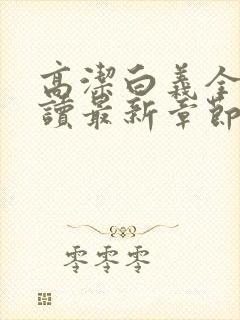 高潔白義全
讀最新章節
零零零